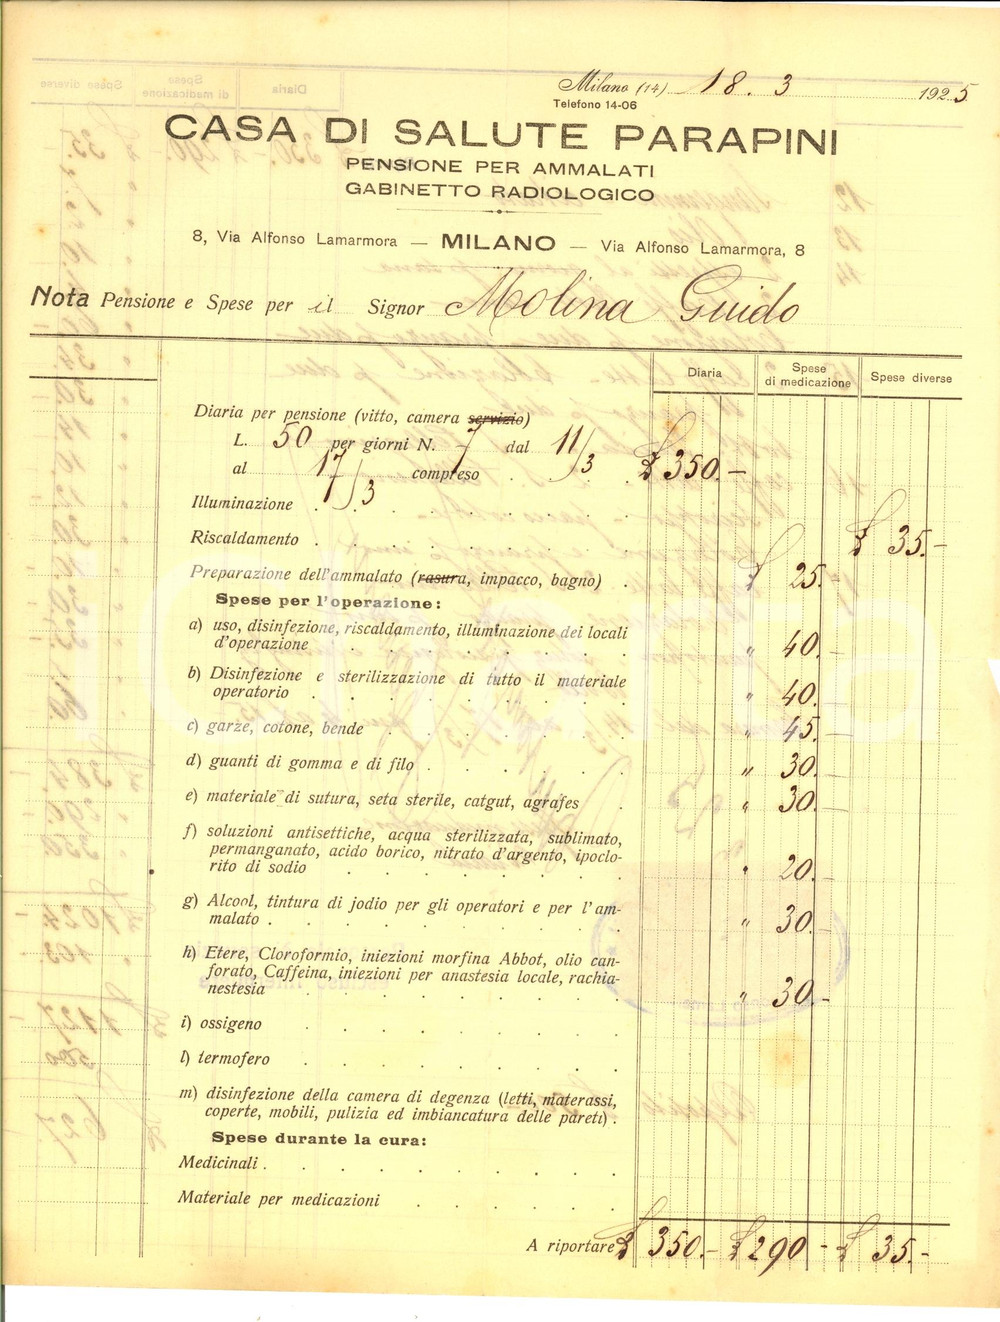 Milano (14) 18. 3 1925
Telefono 14-06
CASA DI SALUTE PARAPINI
PENSIONE PER AMMALATI
GABINETTO RADIOLOGICO
8, Via Alfonso Lamarmora — MILANO — Via Alfonso Lamarmora, 8
Nota Pensione e Spese per il Signor Molina Guido
Diaria Spese di medicazione Spese diverse
Diaria per pensione (vitto, camera servizio)
L. 50 per giorni N. 7 dal 11/3
al 17/3 compreso £ 350.-
Illuminazione
Riscaldamento £ 35.-
Preparazione dell'ammalato (rasura, impacco, bagno) £ 25.-
Spese per l'operazione:
a) uso, disinfezione, riscaldamento, illuminazione dei locali
d'operazione " 40.-
b) Disinfezione e sterilizzazione di tutto il materiale
operatorio " 40.-
c) garze, cotone, bende " 45.-
d) guanti di gomma e di filo " 30.-
e) materiale di sutura, seta sterile, catgut, agrafes " 30.-
f) soluzioni antisettiche, acqua sterilizzata, sublimato,
permanganato, acido borico, nitrato d'argento, ipoclo-
rito di sodio " 20.-
g) Alcool, tintura di jodio per gli operatori e per l'am-
malato " 30.-
h) Etere, Cloroformio, iniezioni morfina Abbot, olio can-
forato, Caffeina, iniezioni per anastesia locale, rachia-
nestesia " 30.-
i) ossigeno
l) termofero
m) disinfezione della camera di degenza (letti, materassi,
coperte, mobili, pulizia ed imbiancatura delle pareti)
Spese durante la cura:
Medicinali
Materiale per medicazioni
A riportare £ 350.- £ 290.- £ 35.-